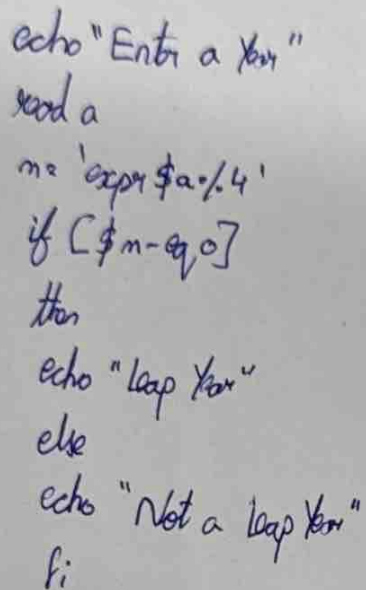 echo "Enter a Year"
read a
n= 'expr $a % 4'
if [$n-eq 0]
then
echo "leap Year"
else
echo "Not a leap Year"
fi